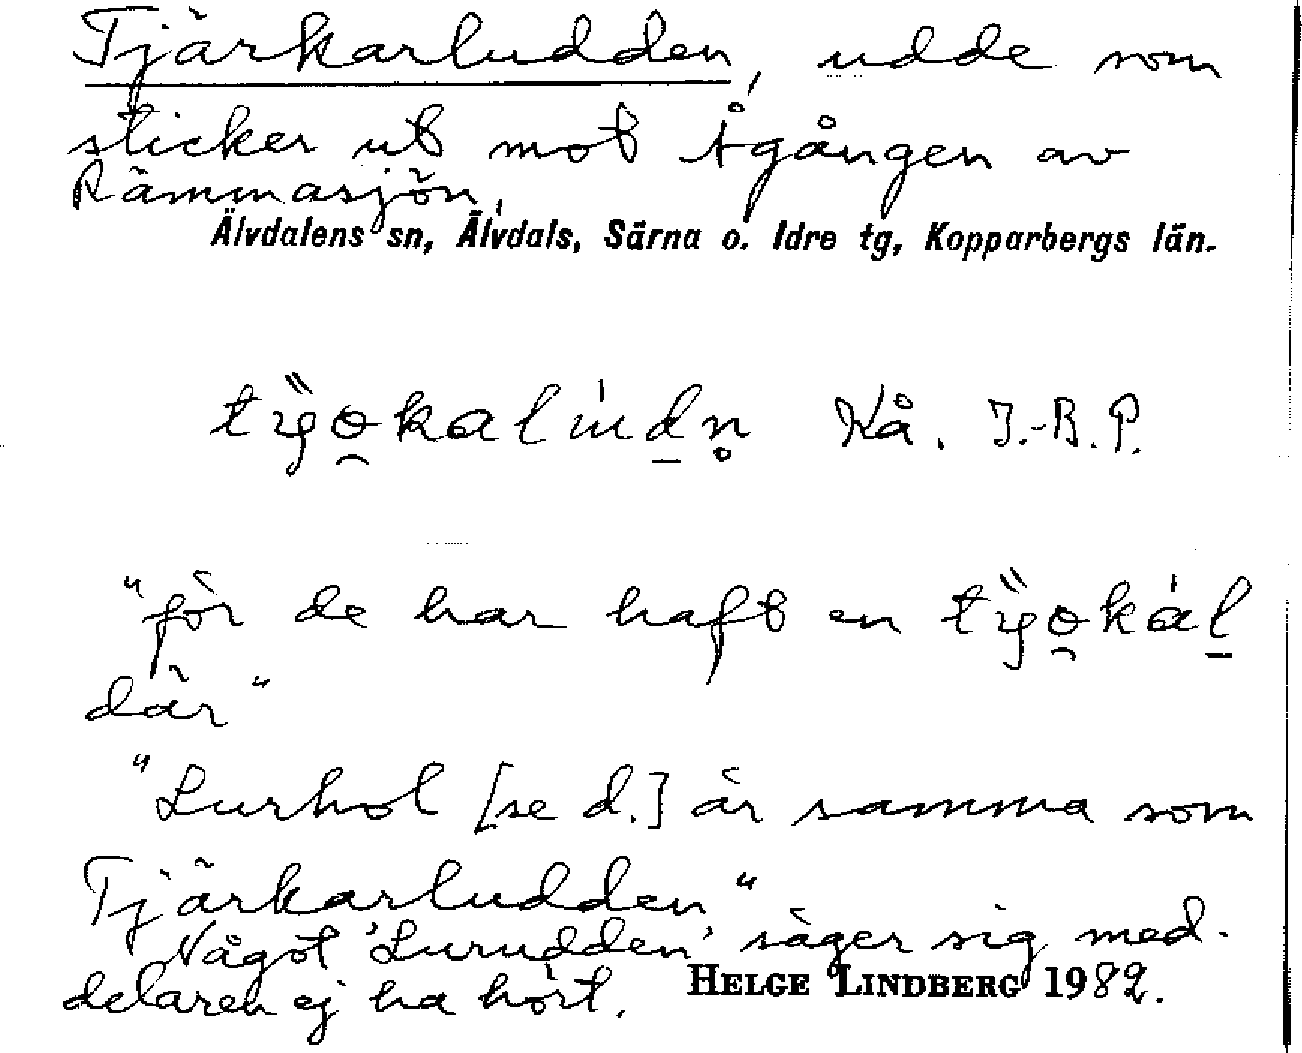 Tjärkarludden, udde som
sticker ut mot Ågången av
Rämmasjön.
Älvdalens sn, Älvdals, Särna o. Idre tg, Kopparbergs län.
Kå. J.-B. P.
"för de har haft en
där"
"Lurhol [se d.] är samma som
Tjärkarludden"
Något 'Lurudden' säger sig med-
delaren ej ha hört. HELGE LINDBERG 1982.